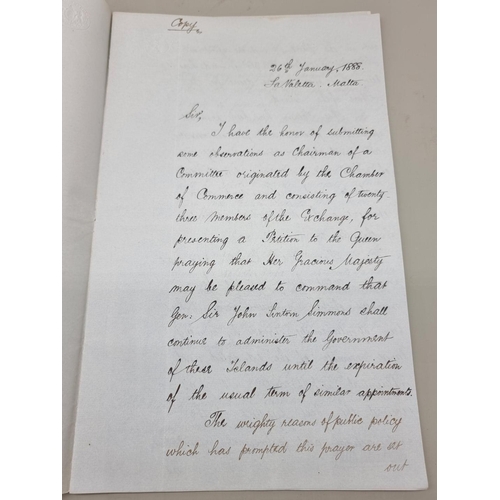 Copy
26th January, 1888.
La Valetta. Malta
Sir,
I have the honor of submitting
some observations as Chairman of a
Committee originated by the Chamber
of Commerce and consisting of twenty
three Members of the Exchange, for
presenting a Petition to the Queen
praying that Her Gracious Majesty
may be pleased to command that
Gen: Sir John Lintorn Simmons shall
continue to administer the Government
of these Islands until the expiration
of the usual term of similar appointments.
The weighty reasons of public policy
which has prompted this prayer are set
out